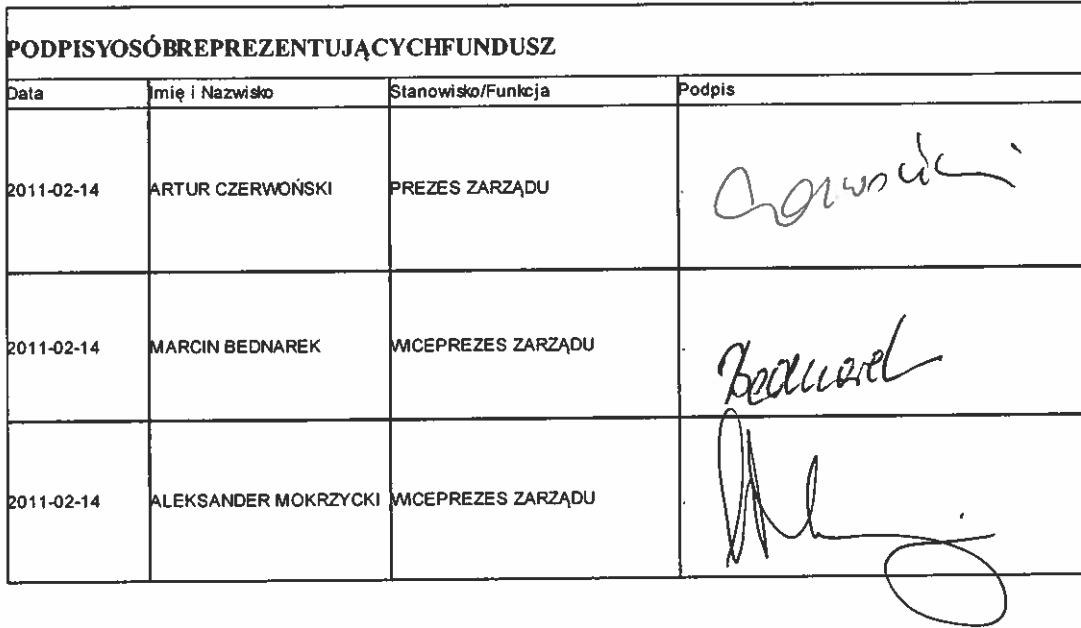 PODPISYOSÓBREPREZENTUJĄCYCHFUNDUSZ
Data Imię i Nazwisko Stanowisko/Funkcja Podpis
2011-02-14 ARTUR CZERWOŃSKI PREZES ZARZĄDU
2011-02-14 MARCIN BEDNAREK WICEPREZES ZARZĄDU Bednarek
2011-02-14 ALEKSANDER MOKRZYCKI WICEPREZES ZARZĄDU